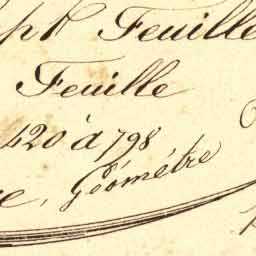 Feuille
Feuille
420 à 798
Géométre